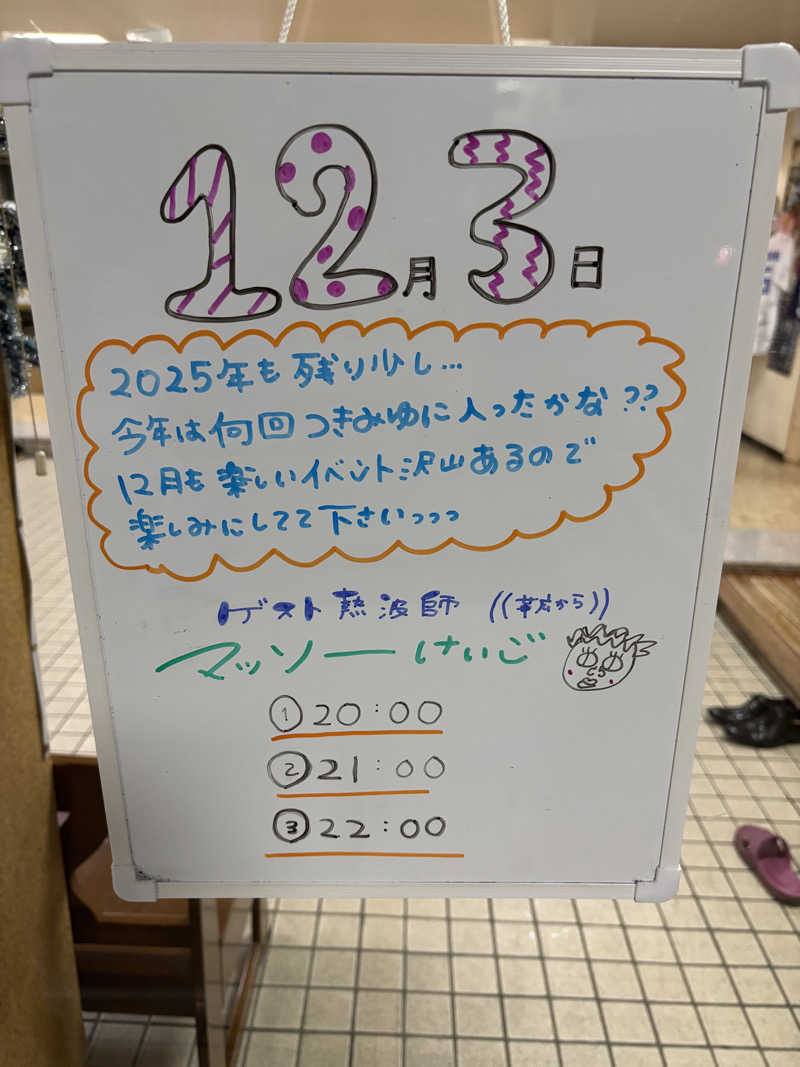 12月3日
2025年も残り少し…
今年は何回つきみゆに入ったかな??
12月も楽しいイベント沢山あるので
楽しみにしてて下さいっっっ
ゲスト熱波師 ((幕府から))
マッソーけいご
①20:00
②21:00
③22:00